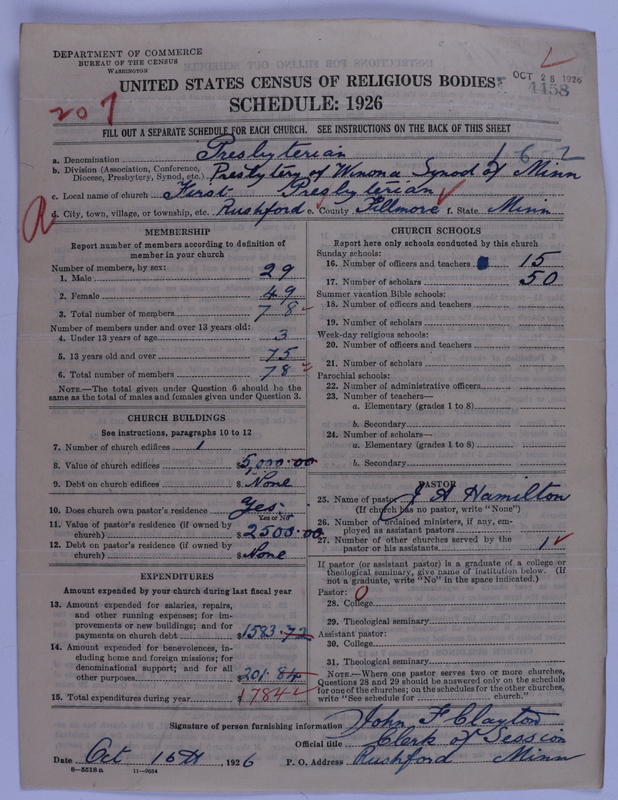 DEPARTMENT OF COMMERCE
BUREAU OF THE CENSUS
WASHINGTON
OCT 28 1926
4458
UNITED STATES CENSUS OF RELIGIOUS BODIES
SCHEDULE: 1926
207
FILL OUT A SEPARATE SCHEDULE FOR EACH CHURCH. SEE INSTRUCTIONS ON THE BACK OF THIS SHEET
a. Denomination Presbyterian 1 6-2
b. Division (Association, Conference, Diocese, Presbytery, Synod, etc.) Presbytery of Winona Synod of Minn
c. Local name of church First Presbyterian
d. City, town, village, or township, etc. Rushford e. County Fillmore f. State Minn
MEMBERSHIP
Report number of members according to definition of
member in your church
Number of members, by sex:
1. Male 29
2. Female 49
3. Total number of members 78
Number of members under and over 13 years old:
4. Under 13 years of age 3
5. 13 years old and over 75
6. Total number of members 78
NOTE.—The total given under Question 6 should be
same as the total of males and females given under Question 3.
CHURCH BUILDINGS
See instructions, paragraphs 10 to 12
7. Number of church edifices 1
8. Value of church edifices $5,000.00
9. Debt on church edifices $None
10. Does church own pastor's residence? Yes.
Yes or No
11. Value of pastor's residence (if owned by
church) $2500.00
12. Debt on pastor's residence (if owned by
church) $None
EXPENDITURES
Amount expended by your church during last fiscal year
13. Amount expended for salaries, repairs,
and other running expenses; for im-
provements or new buildings; and for
payments on church debt $1583.72
14. Amount expended for benevolences, in-
cluding home and foreign missions; for
denominational support; and for all
other purposes $201.84
15. Total expenditures during year $1784
CHURCH SCHOOLS
Report here only schools conducted by this church
Sunday schools:
16. Number of officers and teachers 15
17. Number of scholars 50
Summer vacation Bible schools:
18. Number of officers and teachers
19. Number of scholars
Week-day religious schools:
20. Number of officers and teachers
21. Number of scholars
Parochial schools:
22. Number of administrative officers
23. Number of teachers—
a. Elementary (grades 1 to 8)
b. Secondary
24. Number of scholars—
a. Elementary (grades 1 to 8)
b. Secondary
PASTOR
25. Name of pastor J A Hamilton
(If church has no pastor, write "None")
26. Number of ordained ministers, if any, em-
ployed as assistant pastors
27. Number of other churches served by the
pastor or his assistants 1
If pastor (or assistant pastor) is a graduate of a college or
theological seminary, give name of institution below. (If
not a graduate, write "No" in the space indicated.)
Pastor: 0
28. College
29. Theological seminary
Assistant pastor:
30. College
31. Theological seminary
NOTE.—Where one pastor serves two or more churches,
Questions 28 and 29 should be answered only on the schedule
for one of the churches; on the schedules for the other churches,
write "See schedule for church."
Signature of person furnishing information John F Clayton
Official title Clerk of Session
Date Oct 15th, 1926 P. O. Address Rushford Minn
8—5518a 11—9654